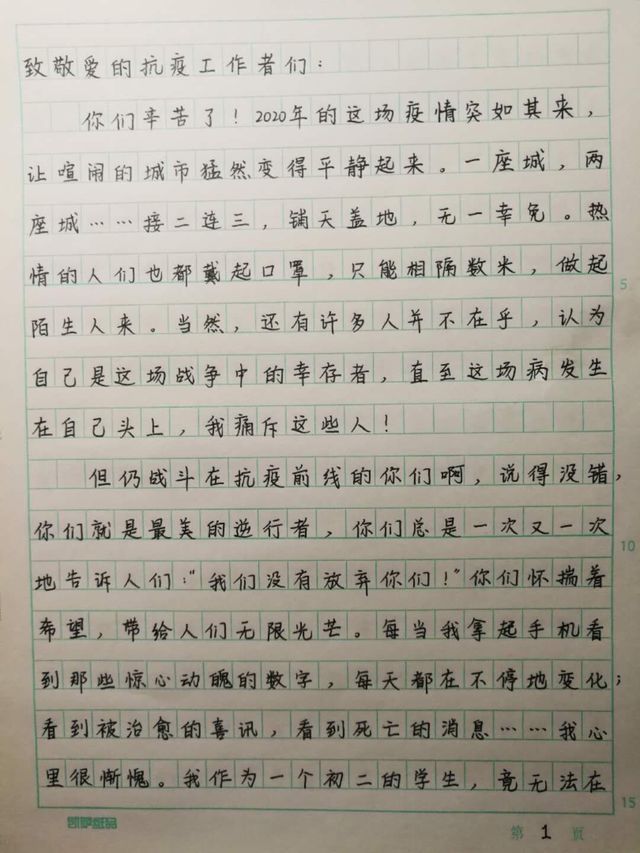 致敬爱的抗疫工作者们：
你们辛苦了！2020年的这场疫情突如其来，
让喧闹的城市猛然变得平静起来。一座城，两
座城……接二连三，铺天盖地，无一幸免。热
情的人们也都戴起口罩，只能相隔数米，做起
5
陌生人来。当然，还有许多人并不在乎，认为
自己是这场战争中的幸存者，直至这场病发生
在自己头上，我痛斥这些人！
但仍战斗在抗疫前线的你们啊，说得没错，
你们就是最美的逆行者，你们总是一次又一次
10
地告诉人们：“我们没有放弃你们！”你们怀揣着
希望，带给人们无限光芒。每当我拿起手机看
到那些惊心动魄的数字，每天都在不停地变化；
看到被治愈的喜讯，看到死亡的消息……我心
里很惭愧。我作为一个初二的学生，竟无法在
15
第 1 页